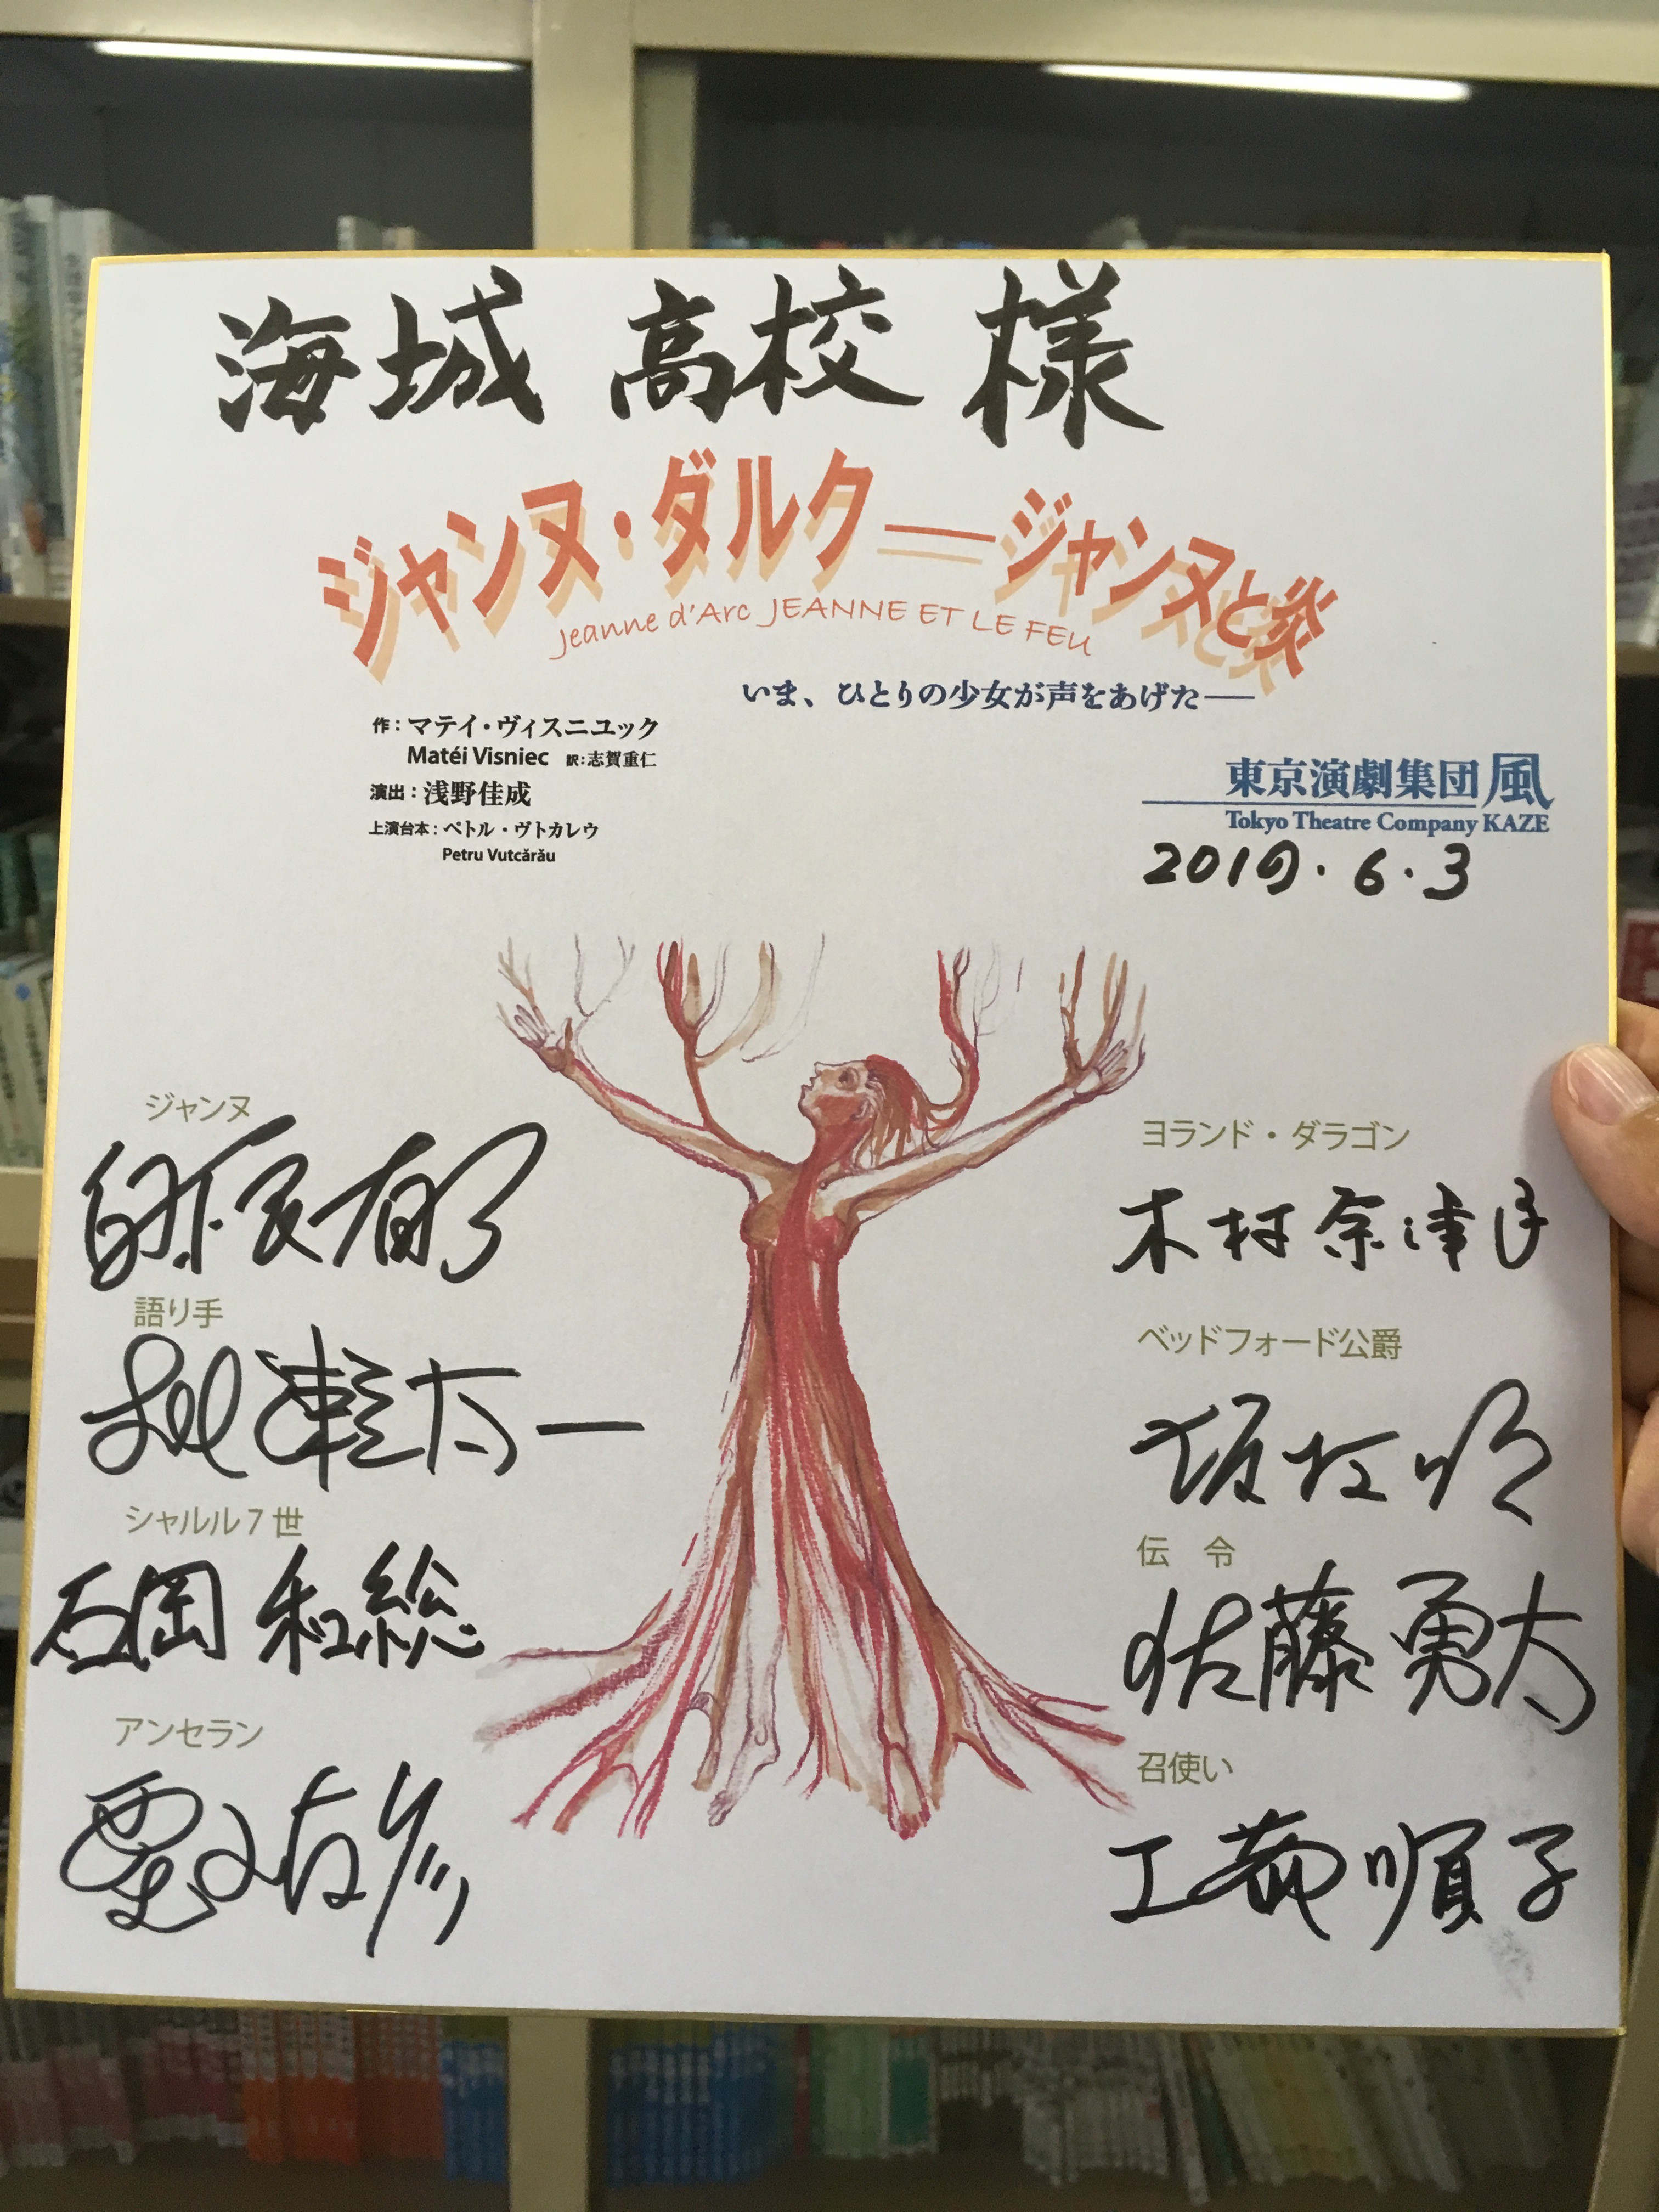 海城 高校 様
ジャンヌ・ダルク――ジャンヌと炎
Jeanne d'Arc JEANNE ET LE FEU
いま、ひとりの少女が声をあげた――
作：マテイ・ヴィスニユック
Matéi Visniec 訳：志賀重仁
演出：浅野佳成
上演台本：ペトル・ヴトカレウ
Petru Vutcărău
東京演劇集団 風
Tokyo Theatre Company KAZE
2019.6.3
ジャンヌ
白根有子
語り手
シャルル7世
石岡 和総
アンセラン
ヨランド・ダラゴン
木村奈津子
ベッドフォード公爵
伝 令
佐藤勇太
召使い
工藤順子